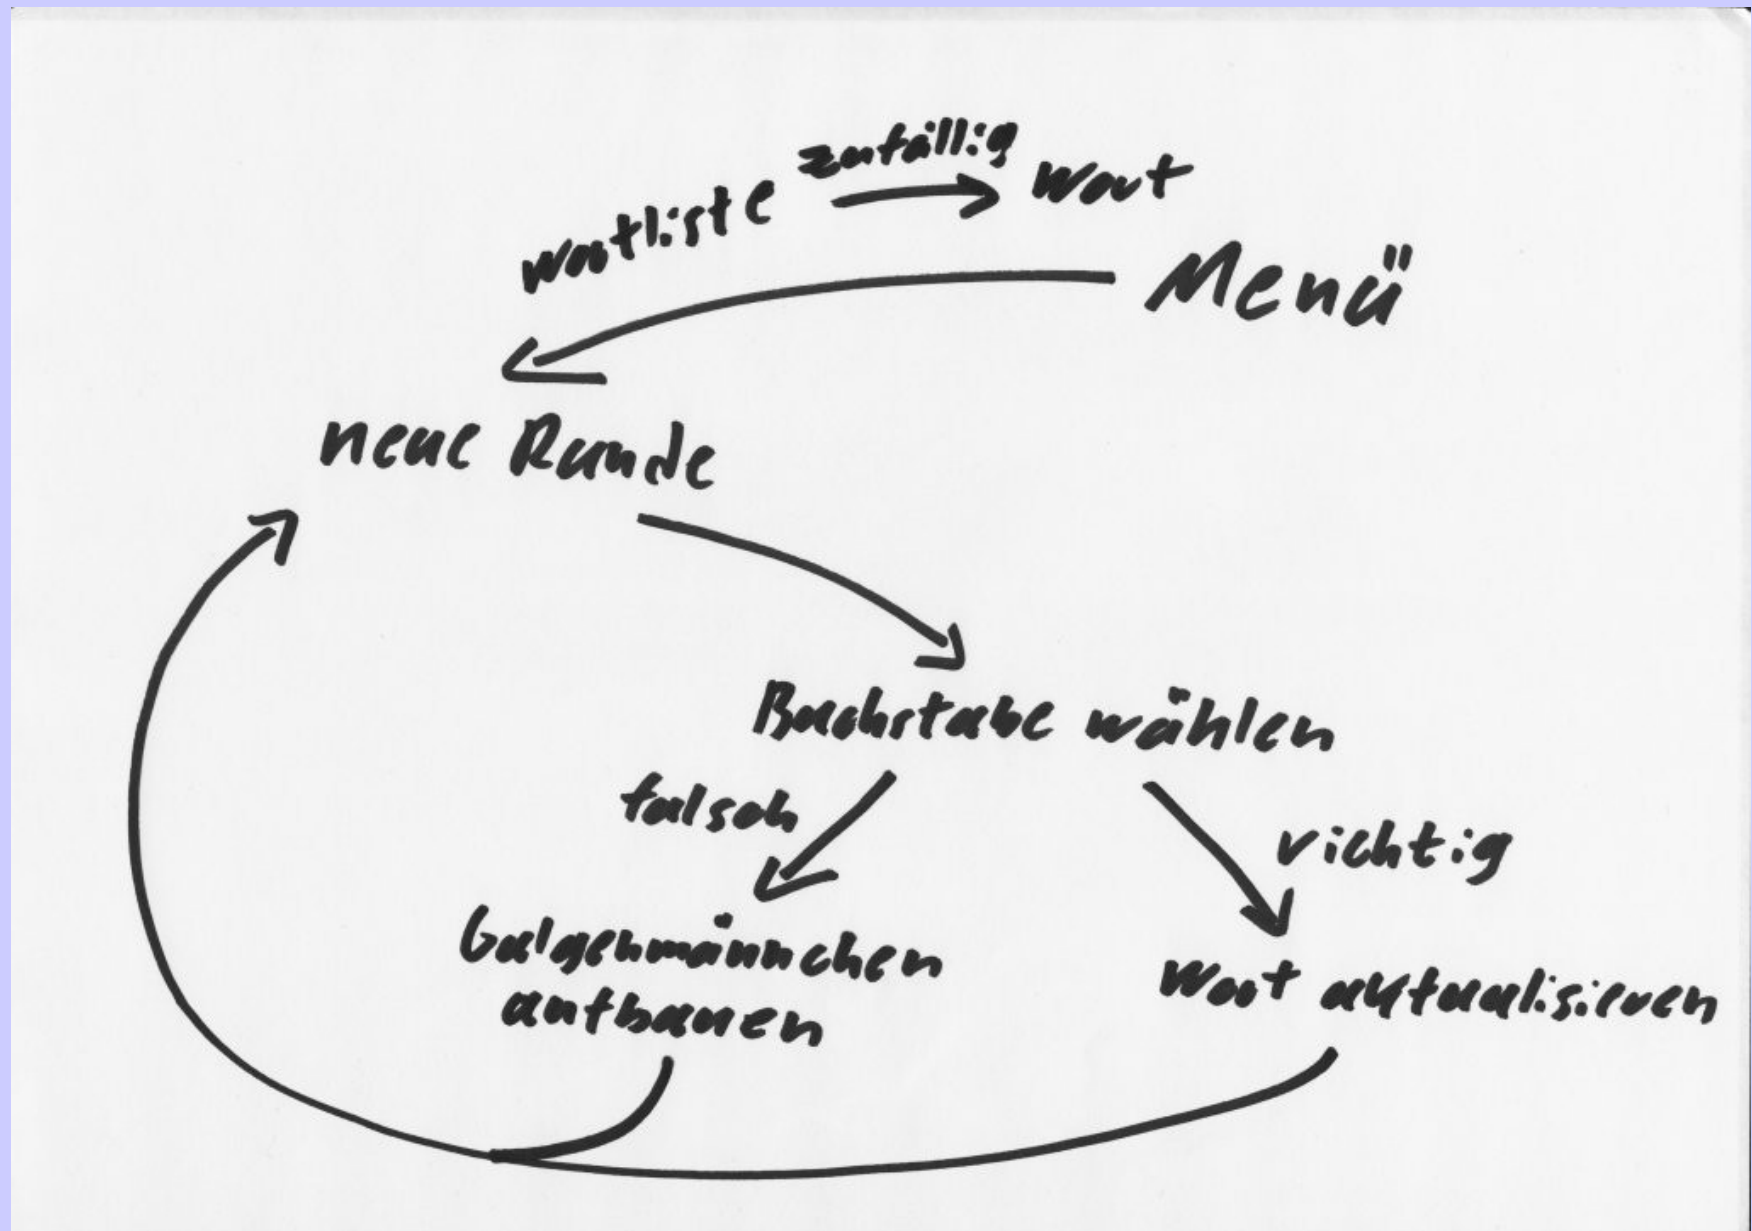 zufällig
wortliste → Wort
Menü
neue Runde
Buchstabe wählen
falsch
richtig
Galgenmännchen
aufbauen
Wort aktualisieren